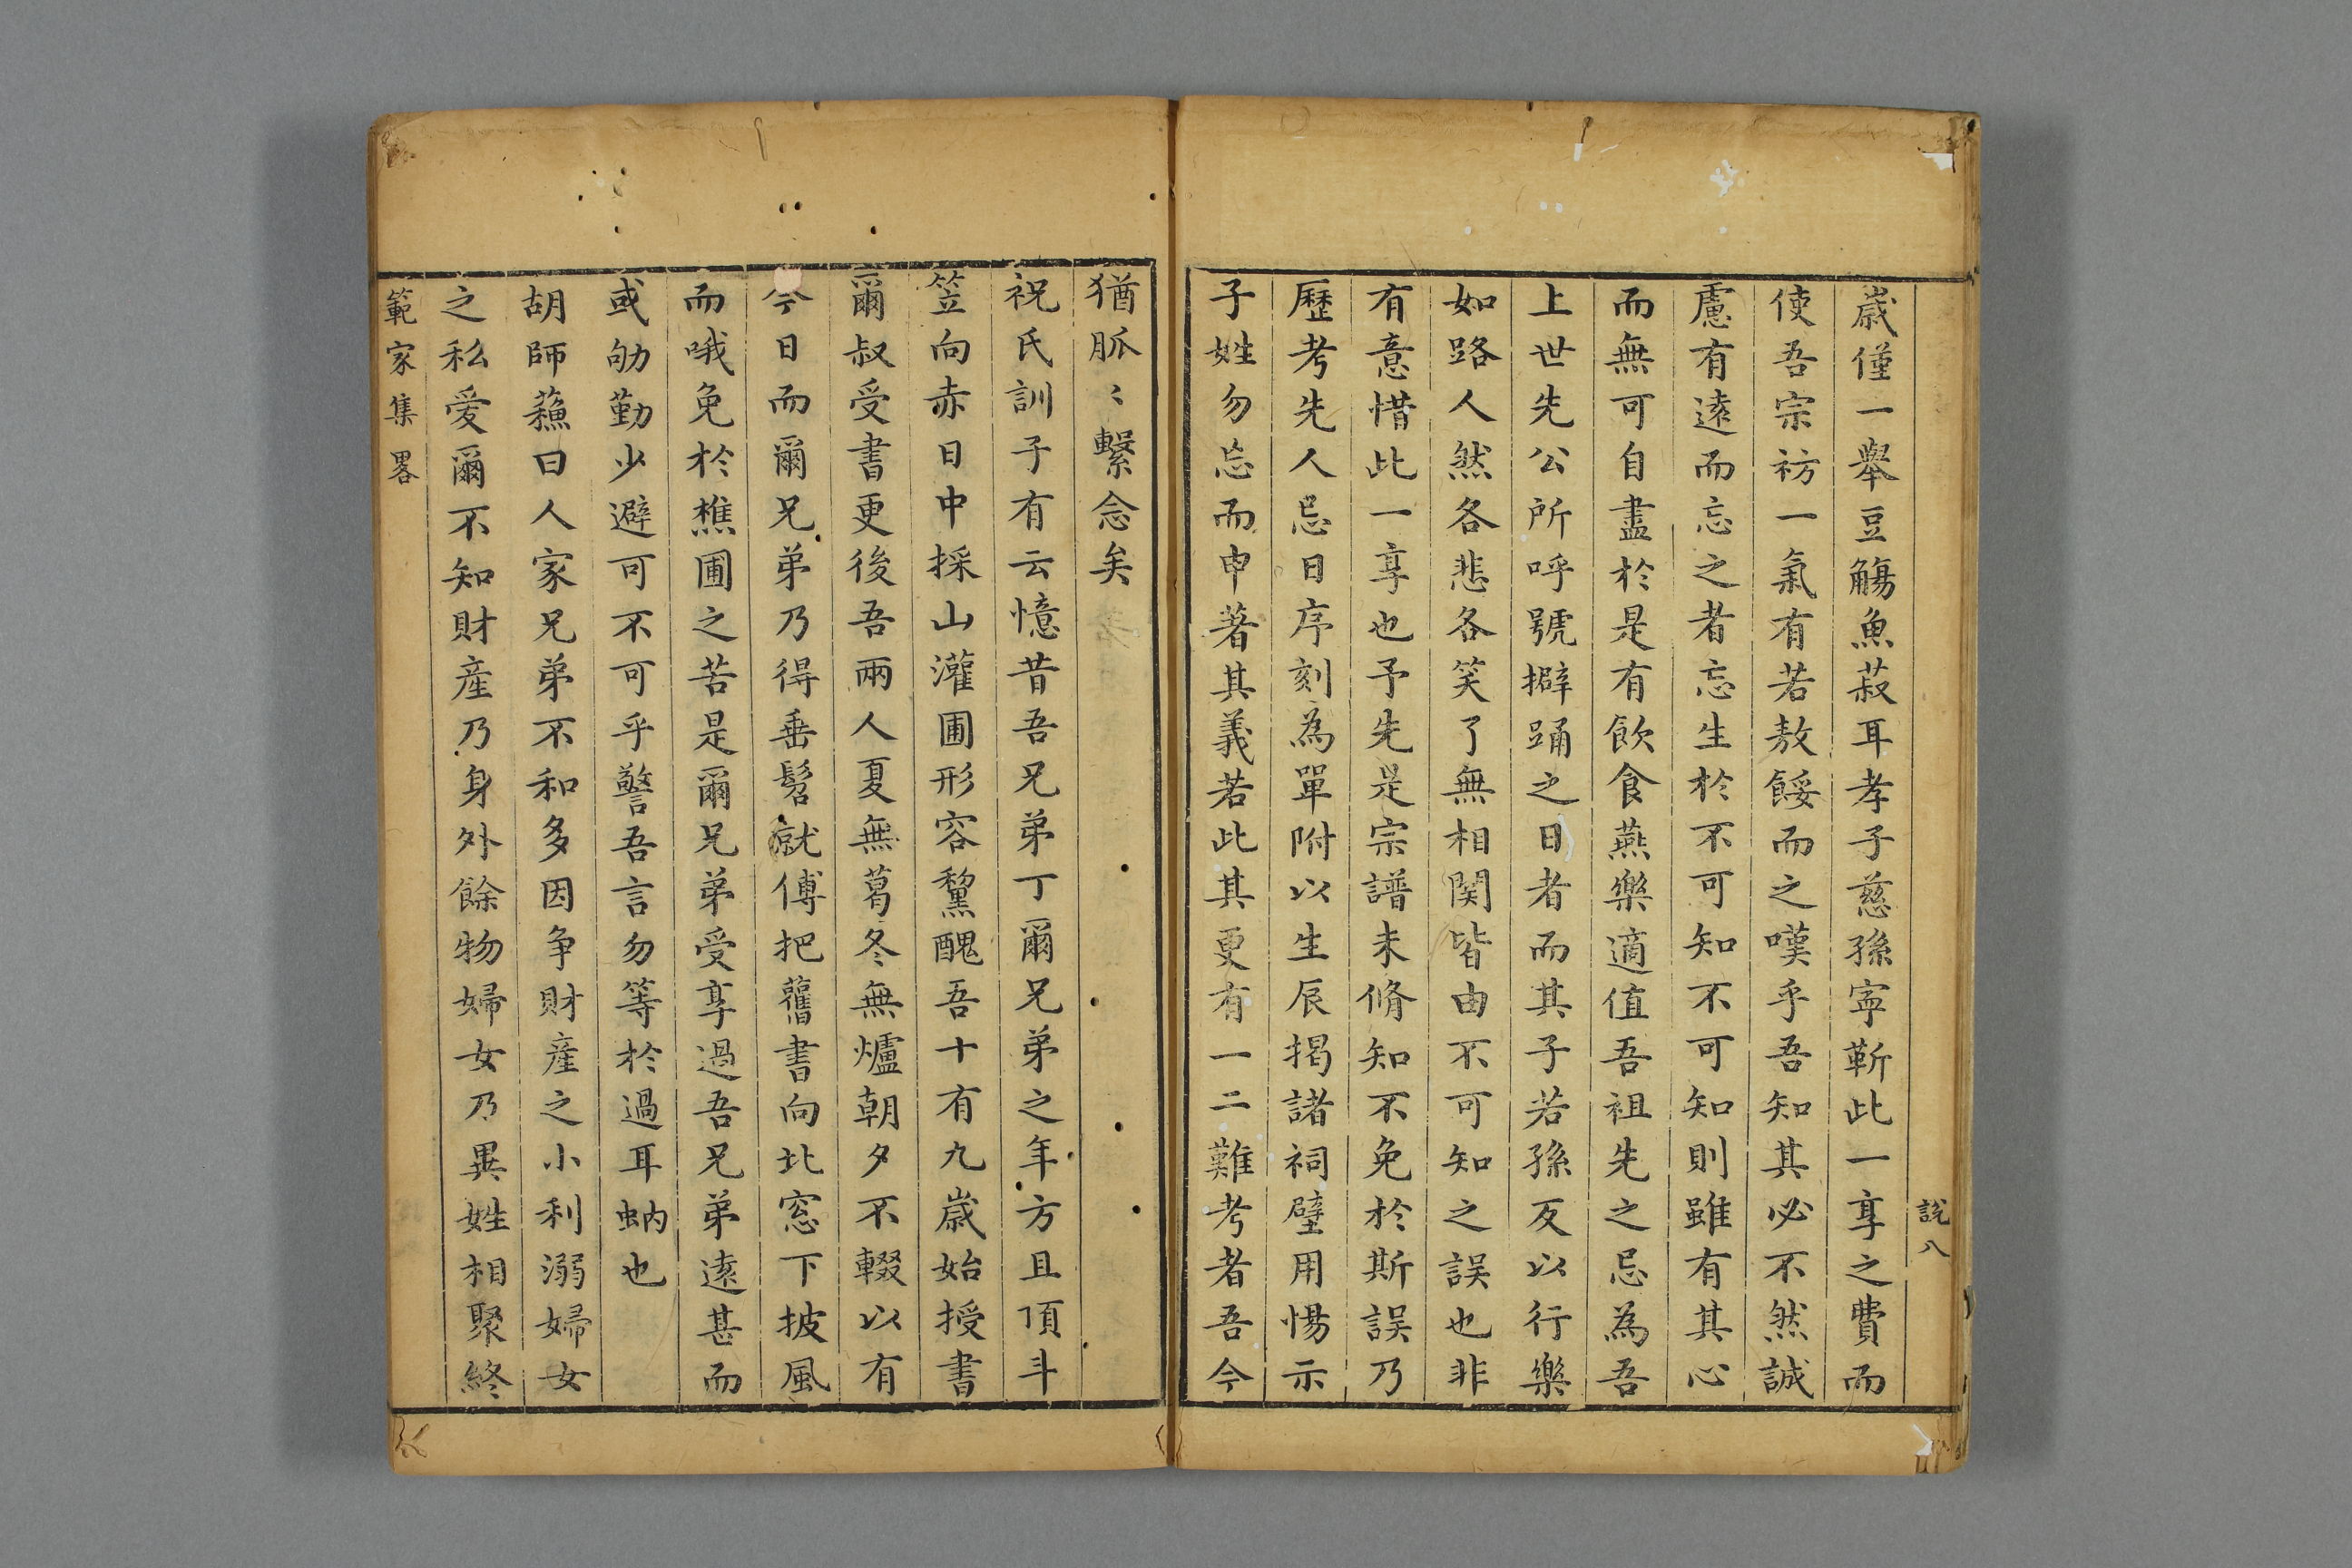 歲僅一舉豆觴魚菽耳孝子慈孫寧靳此一享之費而
使吾宗祊一氣有若敖餒而之嘆乎吾知其必不然誠
慮有遠而忘之者忘生於不可知不可知則雖有其心
而無可自盡於是有飲食燕樂適值吾祖先之忌為吾
上世先公所呼號擗踊之日者而其子若孫反以行樂
如路人然各悲各笑了無相関皆由不可知之誤也非
有意惜此一享也予先是宗譜未脩知不免於斯誤乃
歷考先人忌日序刻為單附以生辰揭諸祠壁用惕示
子姓勿忘而申著其義若此其更有一二難考者吾今
說八
猶脈〻繫念矣
祝氏訓子有云憶昔吾兄弟丁爾兄弟之年方且頂斗
笠向赤日中採山灌圃形容黧醜吾十有九歲始授書
爾叔受書更後吾兩人夏無葛冬無爐朝夕不輟以有
今日而爾兄弟乃得垂髫就傅把舊書向北窓下披風
而哦免於樵圃之苦是爾兄弟受享過吾兄弟遠甚而
或劬勤少避可不可乎警吾言勿等於過耳蚋也
胡師蘓曰人家兄弟不和多因争財產之小利溺婦女
之私爱爾不知財產乃身外餘物婦女乃異姓相聚終
範家集畧